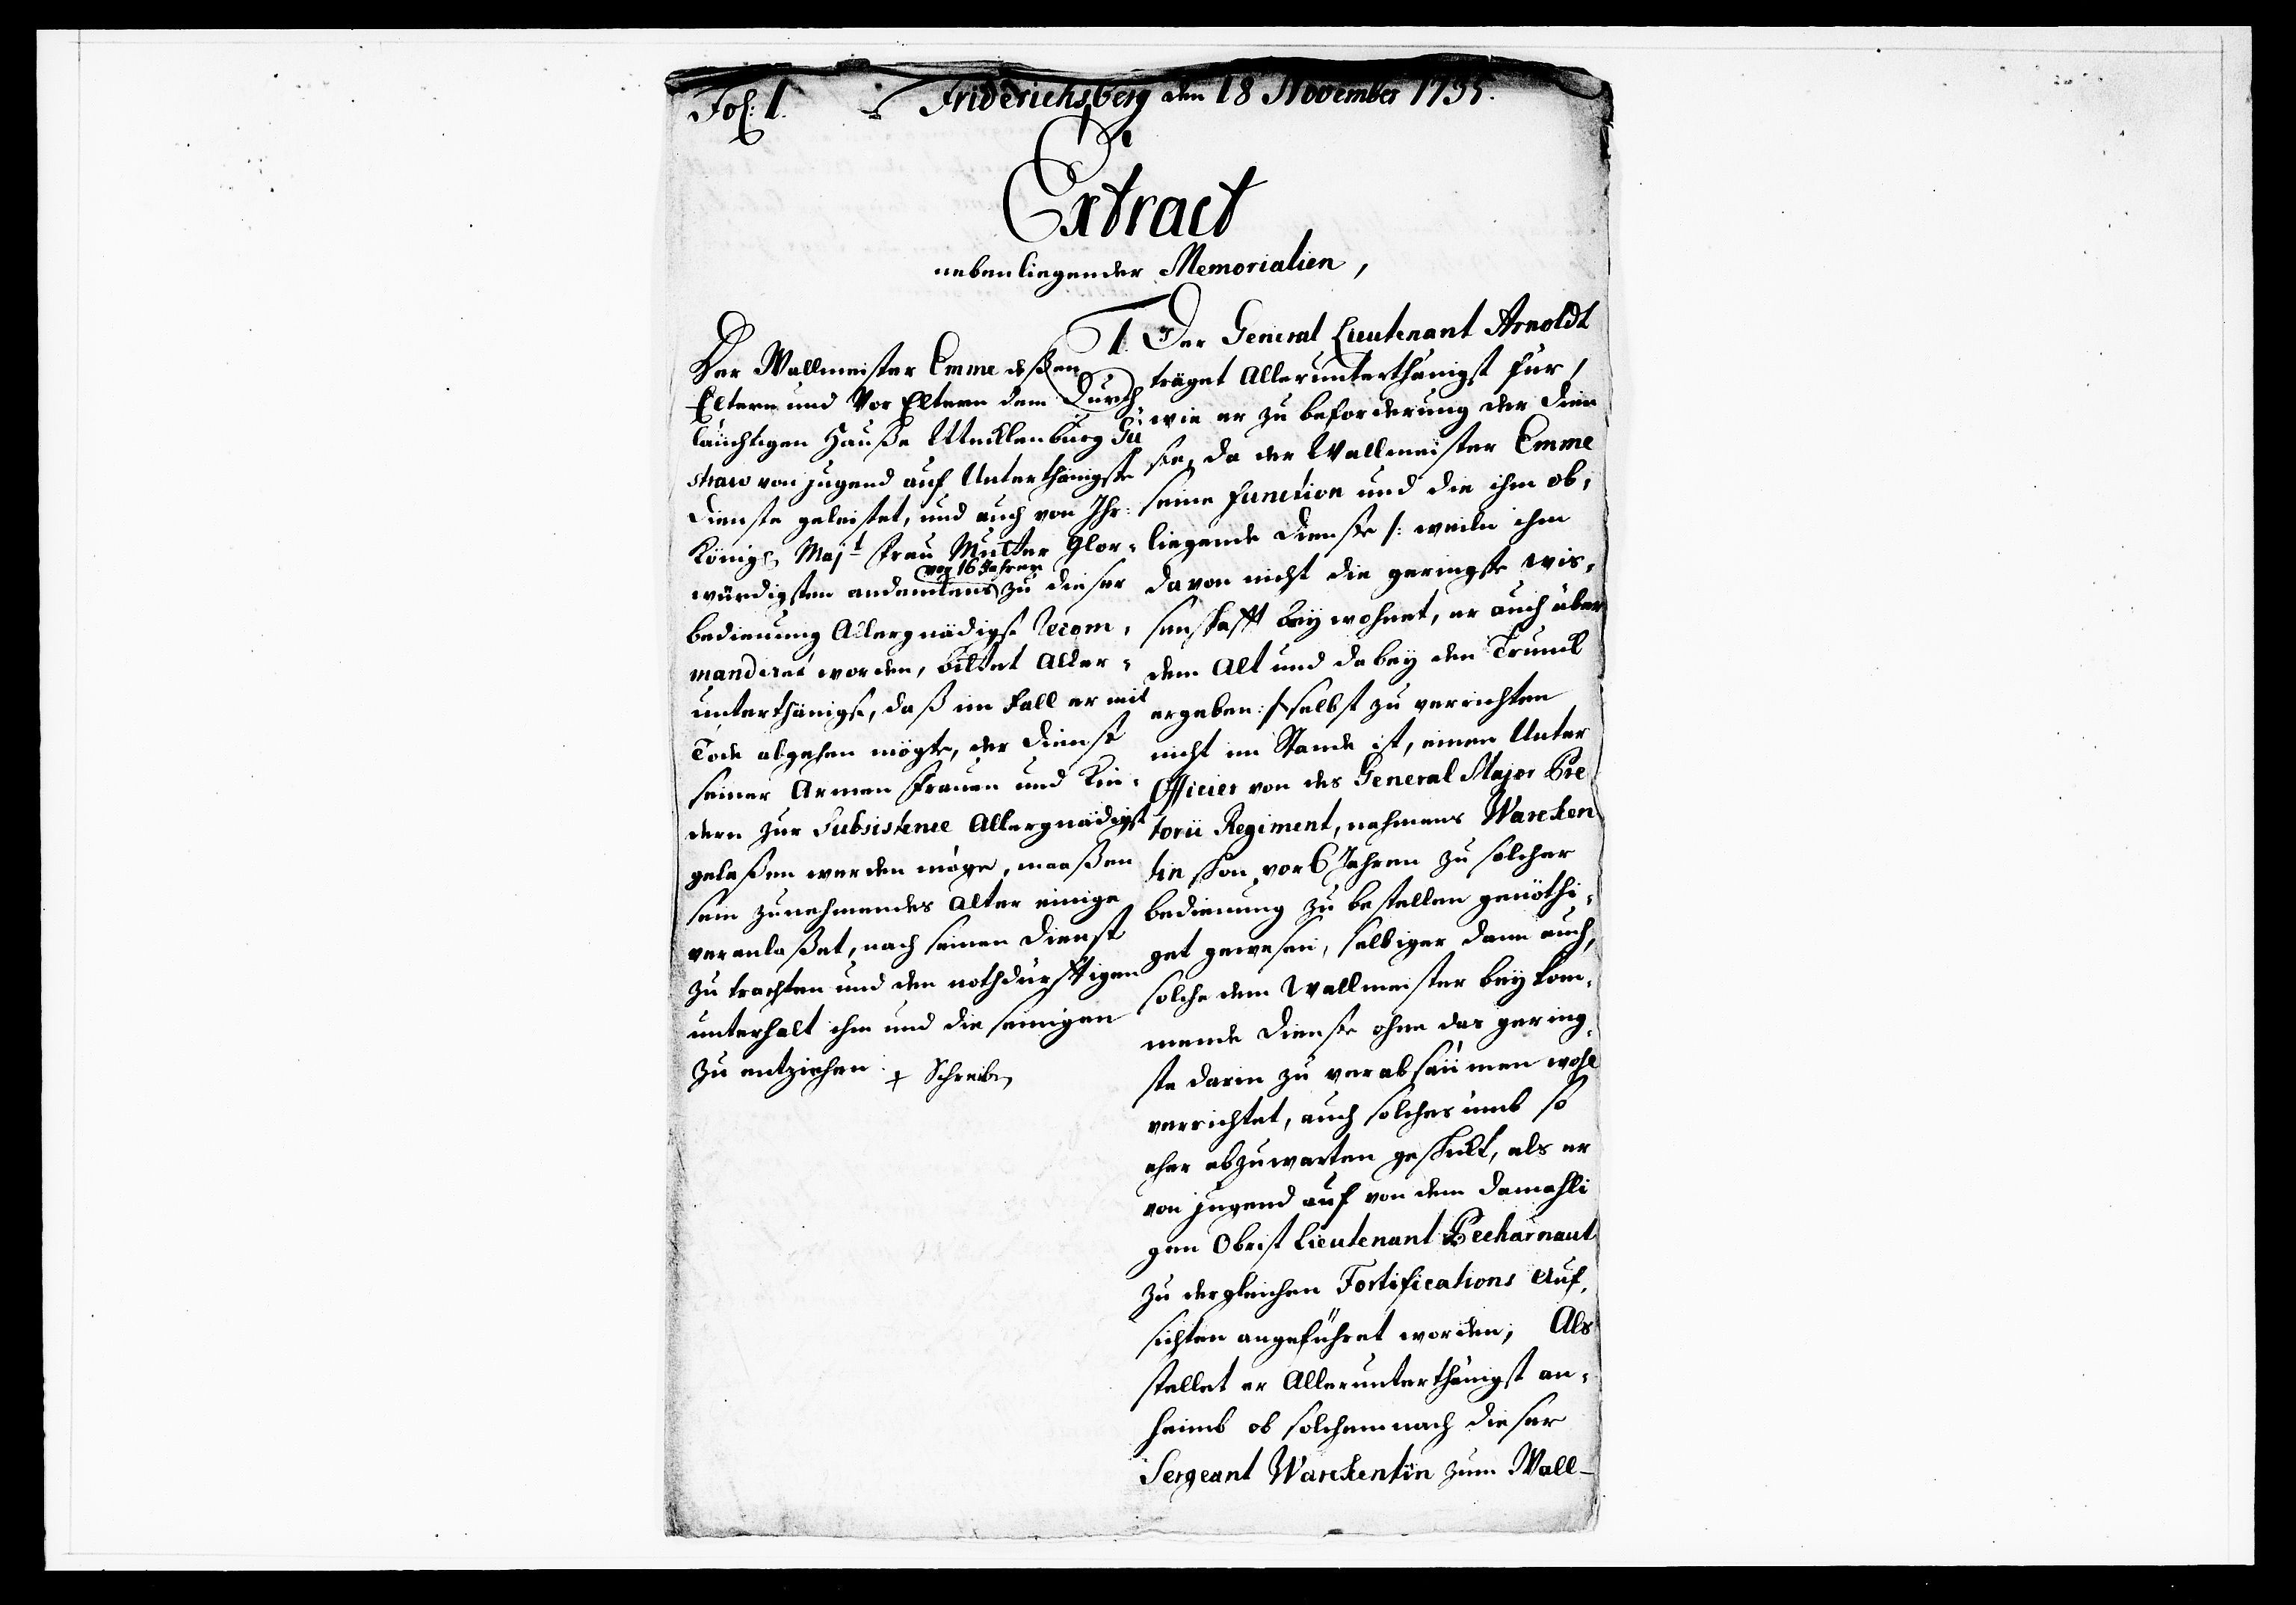 Fol: 1.
Friderichsberg den 18 November 1735.
Extract
nebenliegender Memorialien,
Der Wallmeister Emme deßen
Eltern und Vor Eltern dem Durch
lauchtigen Hauße Mecklenburg Gü
straw von jugend auf Unterthänigste
Dienste geleistet, und auch von Ihr:
Königl. Majt Frau Mutter Glor-
würdigsten andenckens vor 16 Jahren zu dieser
bedienung Allergnädigst recom-
mandiret worden, bittet Aller-
unterthänigst, daß im Fall er mit
Tode abgehen mögte, der Dienst
seiner Armen Frauen und Kin-
dern zur Subsistence Allergnädigst
gelaßen werden möge, maaßen
sein zunehmendes Alter einige
veranlaßet, nach seinen Dienst
zu trachten und den nothdürfftigen
unterhalt ihm und die seinigen
zu entziehen.
+ Schreiben
1. Der General Lieutenant Arnoldt
träget Allerunterthänigst für,
wie er zu beforderung der Dien
ste, da der Wallmeister Emme
seine function und die ihm ob-
liegende Dienste /: weiln ihm
davon nicht die geringste wis-
senschafft beywohnet, er auch über
dem Alt und dabey den Trunck
ergeben :/ selbst zu verrichten
nicht im Stande ist, einen Unter
Officier von des General Major Pre
torii Regiment, nahmens Warcken
tin schon vor 6 Jahren zu solcher
bedienung zu bestellen genöthi-
get gewesen, selbiger dann auch,
solche dem Wallmeister beykom-
mende Dienste ohne das gering-
ste darin zu verabsäumen wohl
verrichtet, auch solches umb so
eher abzuwarten geschickt, als er
von jugend auf von dem damahli
gen Obrist Lieutenant Pecharnaut
zu dergleichen Fortifications Auf-
sichten angeführet worden; Als
stellet er Allerunterthänigst an-
heimb ob solchemnach dieser
Sergeant Warckentin zum Wall-